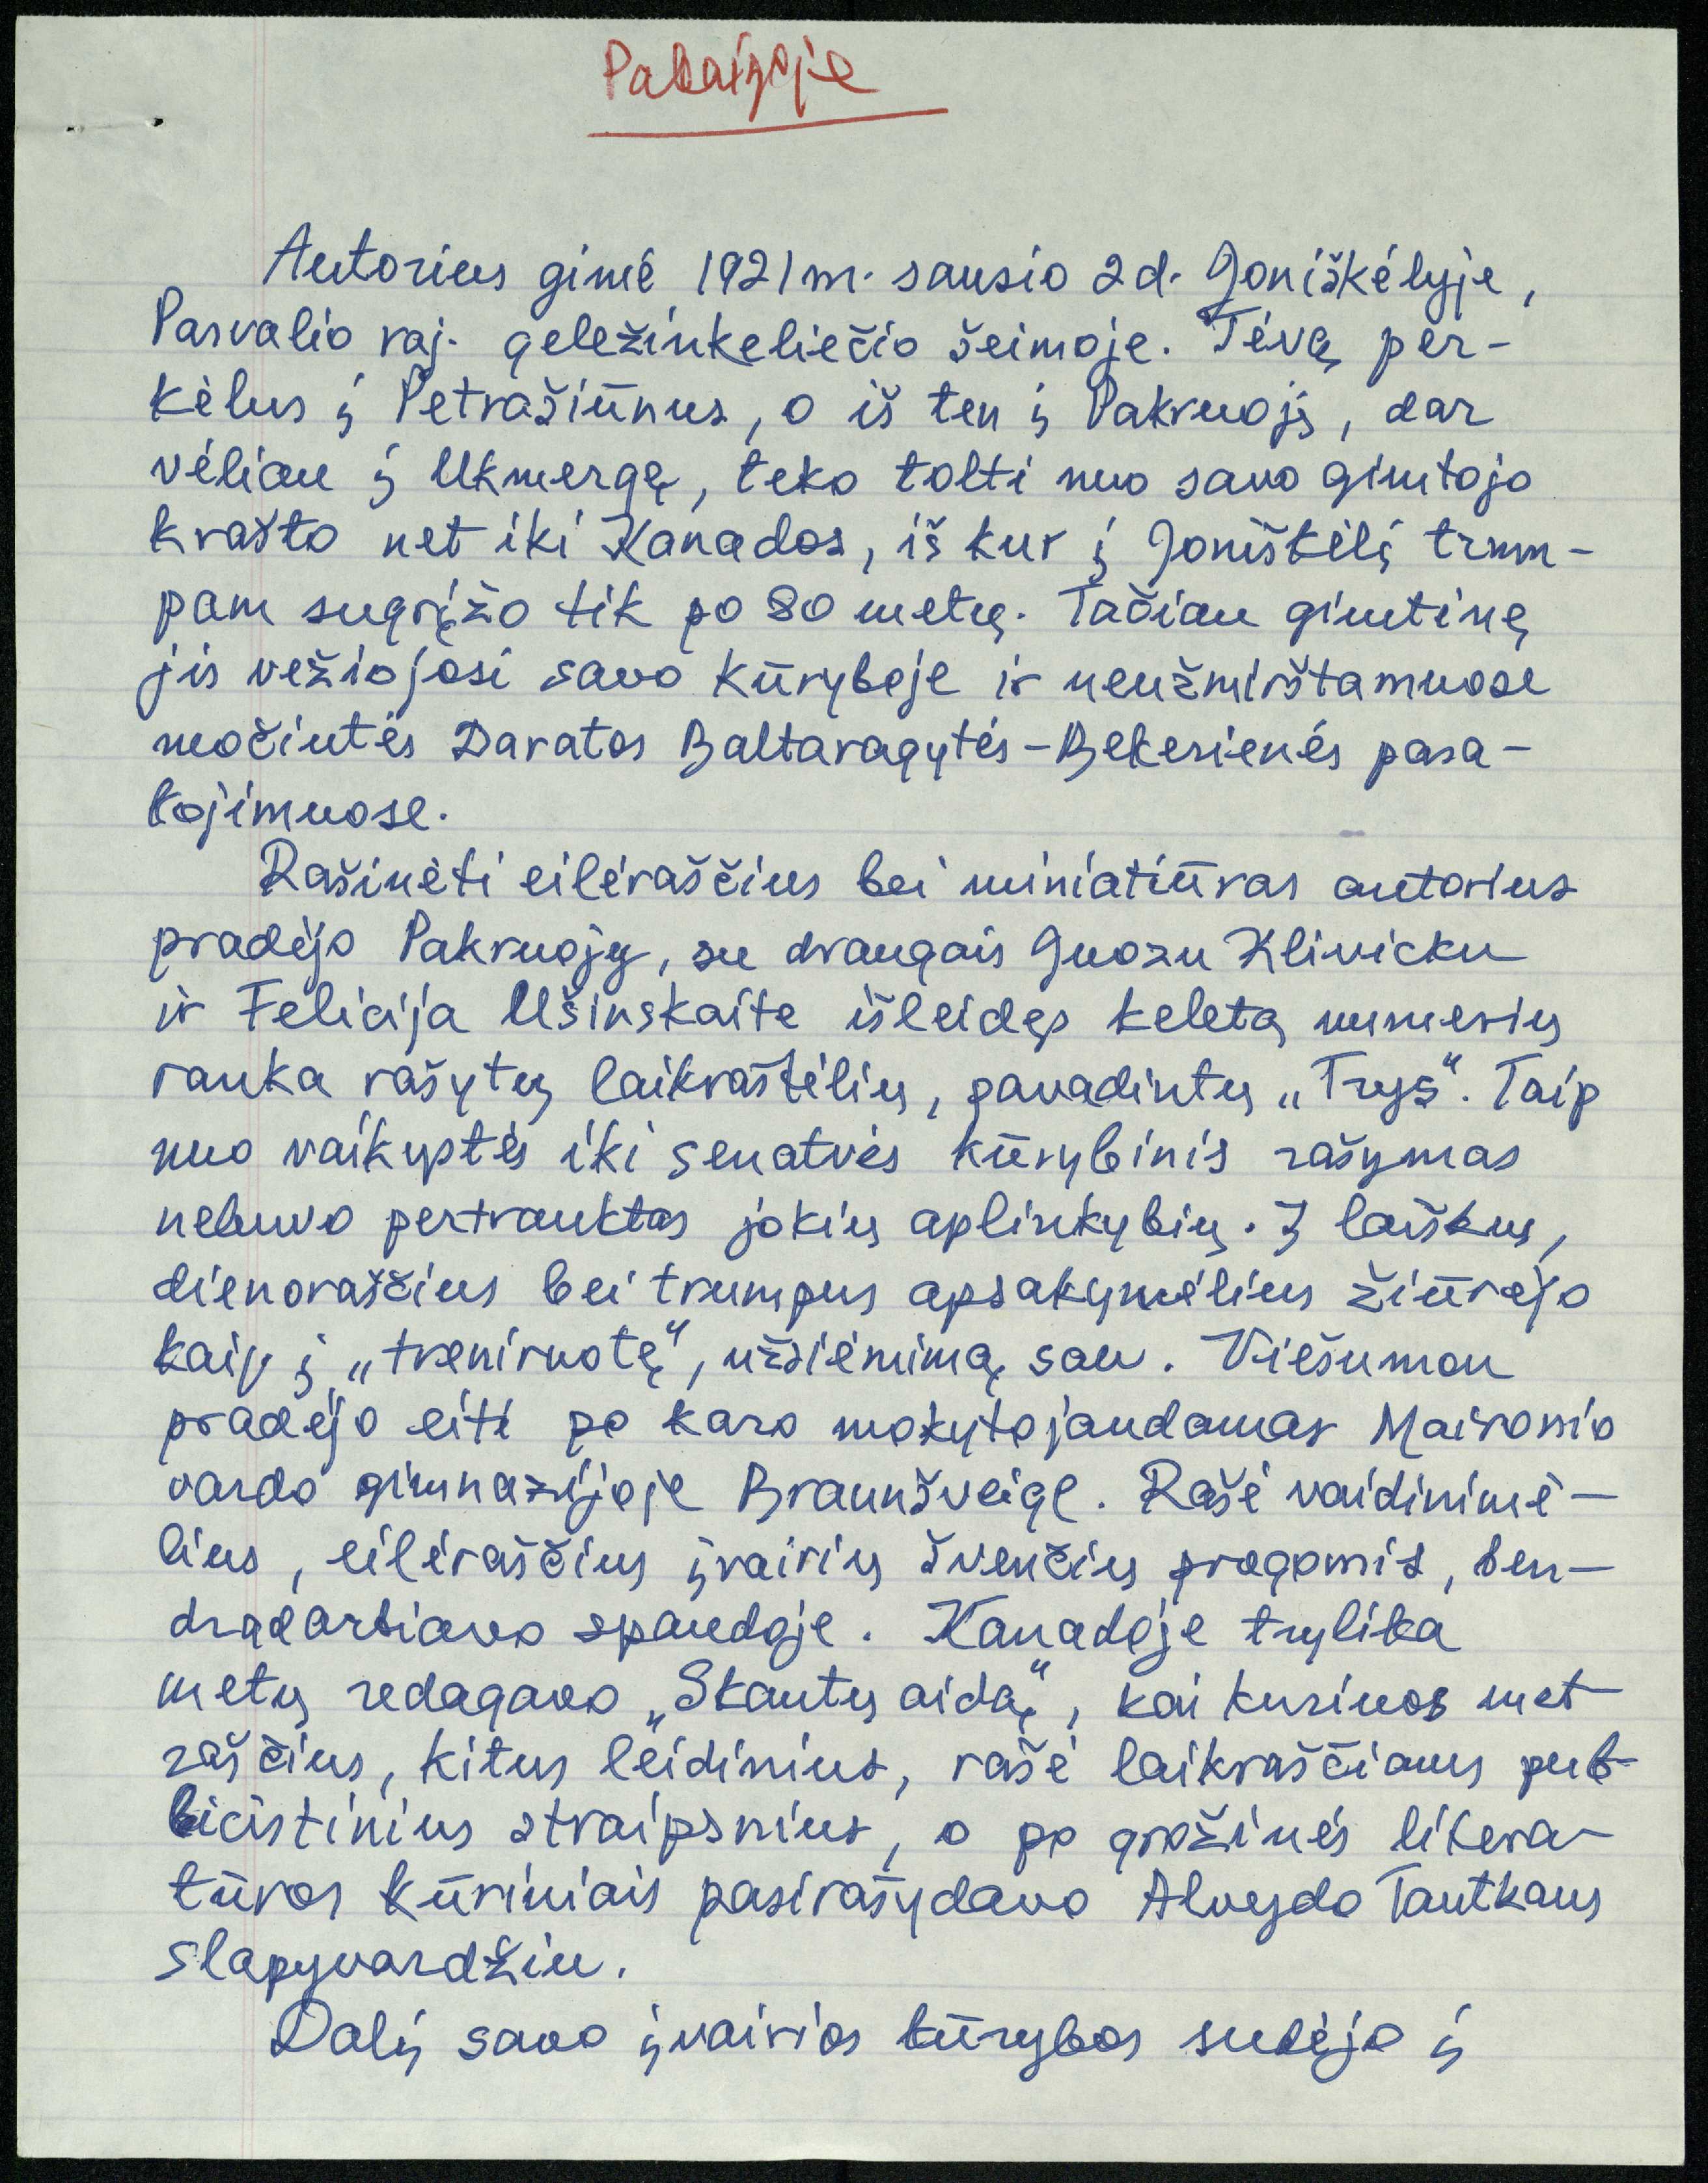 Pabaigoje
Autorius gimė 1921 m. sausio 2 d. Joniškėlyje,
Pasvalio raj. geležinkeliečio šeimoje. Tėvą per-
kėlus į Petrašiūnus, o iš ten į Pakruojį, dar
vėliau į Ukmergę, teko tolti nuo savo gimtojo
krašto net iki Kanados, iš kur į Joniškėlį trum-
pam sugrįžo tik po 80 metų. Tačiau gimtinę
jis vežiojosi savo kūryboje ir neužmirštamuose
močiutės Daratos Baltaragytės-Bekerienės pasa-
kojimuose.
Rašinėti eilėraščius bei miniatiūras autorius
pradėjo Pakruojy, su draugais Juozu Klivicku
ir Felicija Ušinskaite išleidęs keletą numerių
ranka rašytų laikraštėlių, pavadintų „Trys“. Taip
nuo vaikystės iki senatvės kūrybinis rašymas
nebuvo pertrauktas jokių aplinkybių. Į laiškus,
dienoraščius bei trumpus apsakymėlius žiūrėjo
kaip į „treniruotę“, užsiėmimą sau. Viešumon
pradėjo eiti po karo mokytojaudamas Maironio
vardo gimnazijoje Braunšveige. Rašė vaidinimė-
lius, eilėraščius įvairių švenčių progomis, ben-
dradarbiavo spaudoje. Kanadoje trylika
metų redagavo „Skautų aidą“, kai kuriuos met-
raščius, kitus leidinius, rašė laikraščiams pub-
licistinius straipsnius, o po grožinės litera-
tūros kūriniais pasirašydavo Alvydo Tautkaus
slapyvardžiu.
Dalį savo įvairios kūrybos sudėjo į